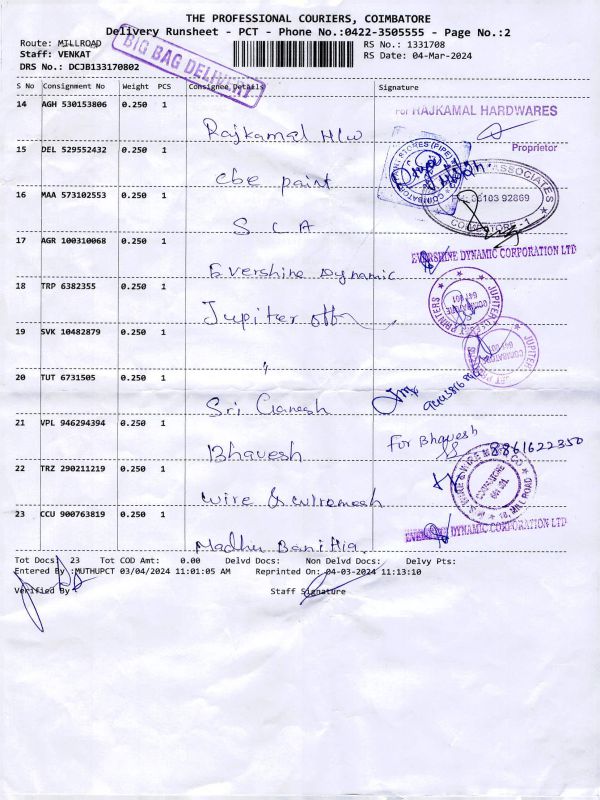 THE PROFESSIONAL COURIERS, COIMBATORE
Delivery Runsheet - PCT - Phone No.:0422-3505555 - Page No.:2
Route: MILLROAD
RS No.: 1331708
Staff: VENKAT
RS Date: 04-Mar-2024
DRS No.: DCJB133170802
BIG BAG DELIVERY
S No Consignment No Weight PCS Consignee Details Signature
14 AGH 530153806 0.250 1
Rajkamal H/w
For RAJKAMAL HARDWARES
Proprietor
15 DEL 529552432 0.250 1
cbe paint
STORES (PIPE)
16 MAA 573102553 0.250 1
S C A
ASSOCIATES
COIMBATORE - 1
17 AGR 100310068 0.250 1
Evershine Dynamic
EVERSHINE DYNAMIC CORPORATION LTD
18 TRP 6382355 0.250 1
Jupiter off
JUPITER
PRINTERS
COIMBATORE
641 001
19 SVK 10482879 0.250 1
"
JUPITER
COIMBATORE
20 TUT 6731505 0.250 1
Sri Ganesh
21 VPL 946294394 0.250 1
Bhavesh
For Bhavesh
8861622350
22 TRZ 290211219 0.250 1
Wire & wiremesh
COIMBATORE
MILL ROAD
23 CCU 900763819 0.250 1
EVERSHINE DYNAMIC CORPORATION LTD
Tot Docs: 23 Tot COD Amt: 0.00 Delvd Docs: Non Delvd Docs: Delvy Pts:
Entered By :MUTHUPCT 03/04/2024 11:01:05 AM Reprinted On: 04-03-2024 11:13:10
Verified By Staff Signature